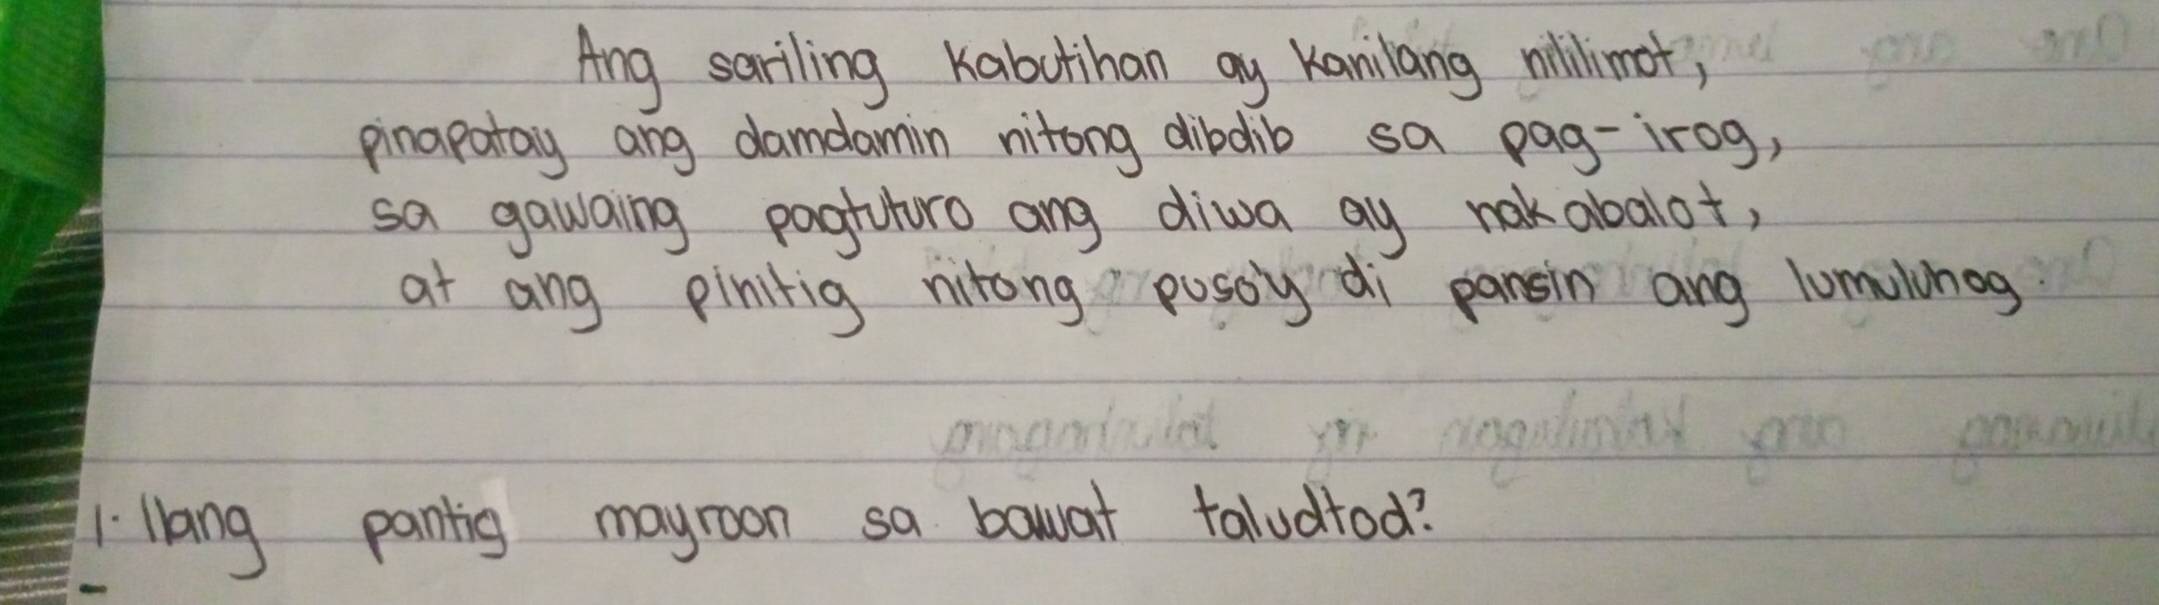 Ang sariling kabutihan ay kanilang nililimot,
pinapatay ang damdamin nitong dibdib sa pag-irog,
sa gawaing pagtuturo ang diwa ay nakabalot,
at ang pinitig nitong puso'y di pansin ang lumuluhog.
1. Ilang pantig mayroon sa bawat taludtod?